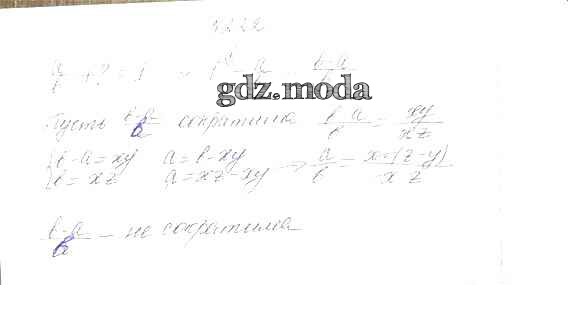 1222
a/b + ? = 1 1 - a/b b-a/b
gdz.moda
Пусть b-a/b сократима b-a/b = xy/xz
{b-a = xy a = b-xy
{b = xz a = xz-xy → a/b = x(z-y)/xz
b-a/b - не сократима